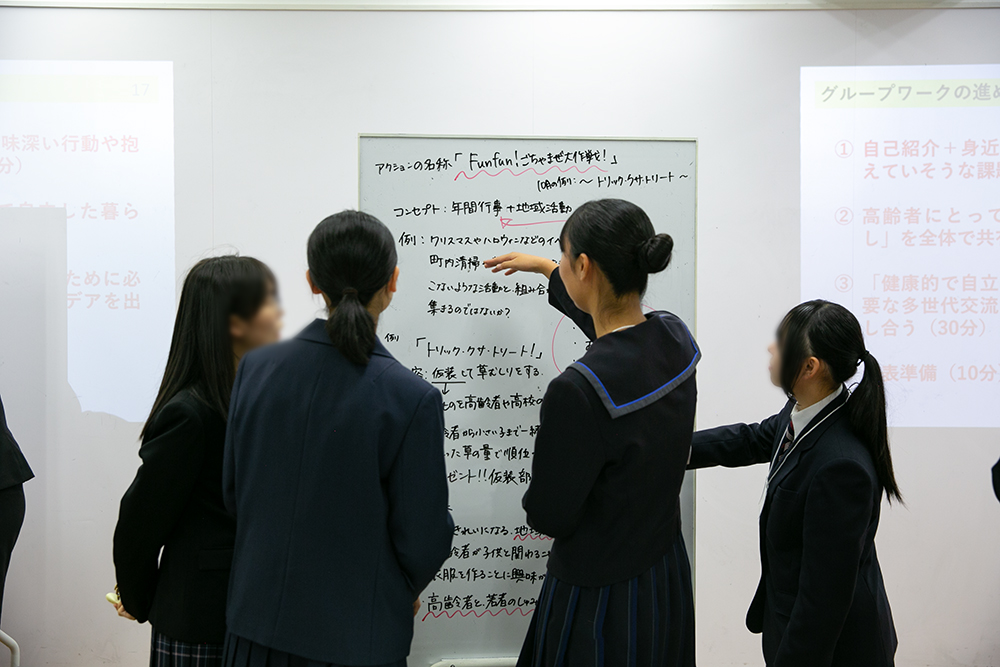 17
味深い行動や抱
分）
した暮ら
ために必
デアを出
アクションの名称「Funfun!ごちゃまぜ大作戦!」
10月の例：〜トリック・クサ・トリート〜
コンセプト：年間行事＋地域活動
例：クリスマスやハロウィンなどのイベ
町内清掃
こないような活動と、組み合
集まるのではないか？
例
「トリック・クサ・トリート!」
容：仮装して草むしりをする。
ものを高齢者や高校の
者から小さい子まで一緒
った草の量で順位
ゼント!!仮装部
きれいになる。地域
者が子供と関わるこ
衣服を作ることに興味が
高齢者と、若者のしゅみ
グループワークの進め
① 自己紹介＋身近
えていそうな課題
② 高齢者にとって
し」を全体で共有
③ 「健康的で自立
要な多世代交流
し合う（30分）
表準備（10分）